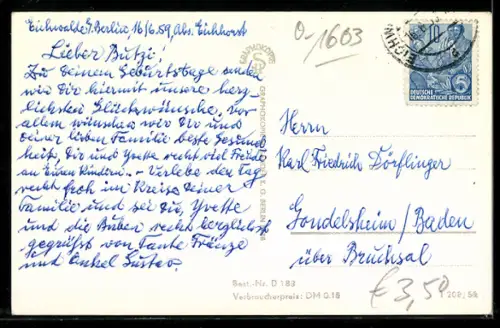 Eichwalde b. Berlin 16/6.59, Abs. Eichhorst
Lieber Butzi!
Zu Deinem Geburtstage senden
wir Dir hiermit unsere herz-
lichsten Glückwünsche, vor
allem wünschen wir Dir und
Deiner lieben Familie beste Gesund-
heit, Dir und Yvette recht viel Freude
an Euren Kindern. - Verlebe den Tag
recht froh im Kreise Deiner
Familie und sei Du, Yvette
und die Buben recht herzlichst
gegrüßt von Tante Fränze
und Onkel Gustav.
GRAPHOKOPIE
0-1603
10
5
DEUTSCHE
DEMOKRATISCHE REPUBLIK
Herrn
Karl Friedrich Dörflinger
Gondelsheim/Baden
über Bruchsal
Best.-Nr. D 183
Verbraucherpreis: DM 0.18
€ 3,50